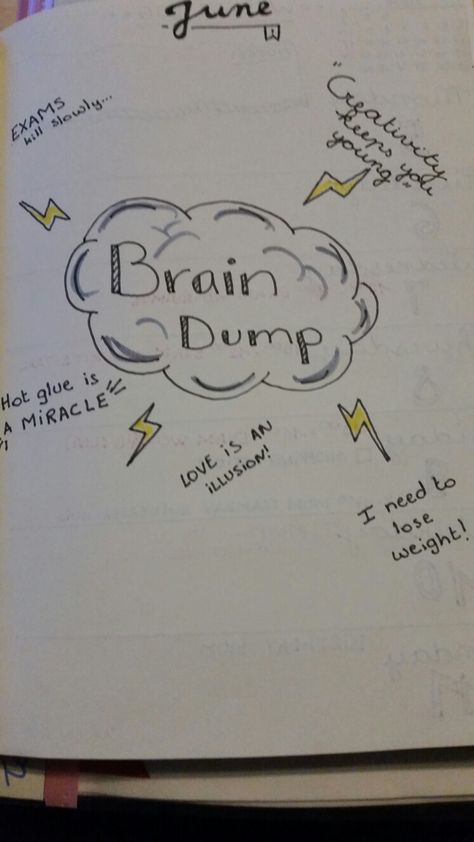 June
EXAMS
kill slowly...
"Creativity
keeps you
young"
Brain
Dump
Hot glue is
A MiRACLE
LOVE iS AN
iLLUSION!
I need to
lose
weight!